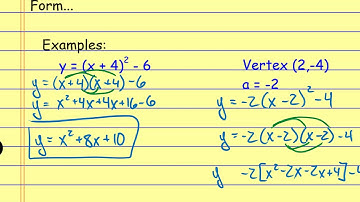 Form...
Examples:
y = (x + 4)² - 6
y = (x+4)(x+4) -6
y = x²+4x+4x+16-6
y = x²+8x+10
Vertex (2,-4)
a = -2
y = -2(x-2)²-4
y = -2(x-2)(x-2)-4
y -2[x²-2x-2x+4]-4